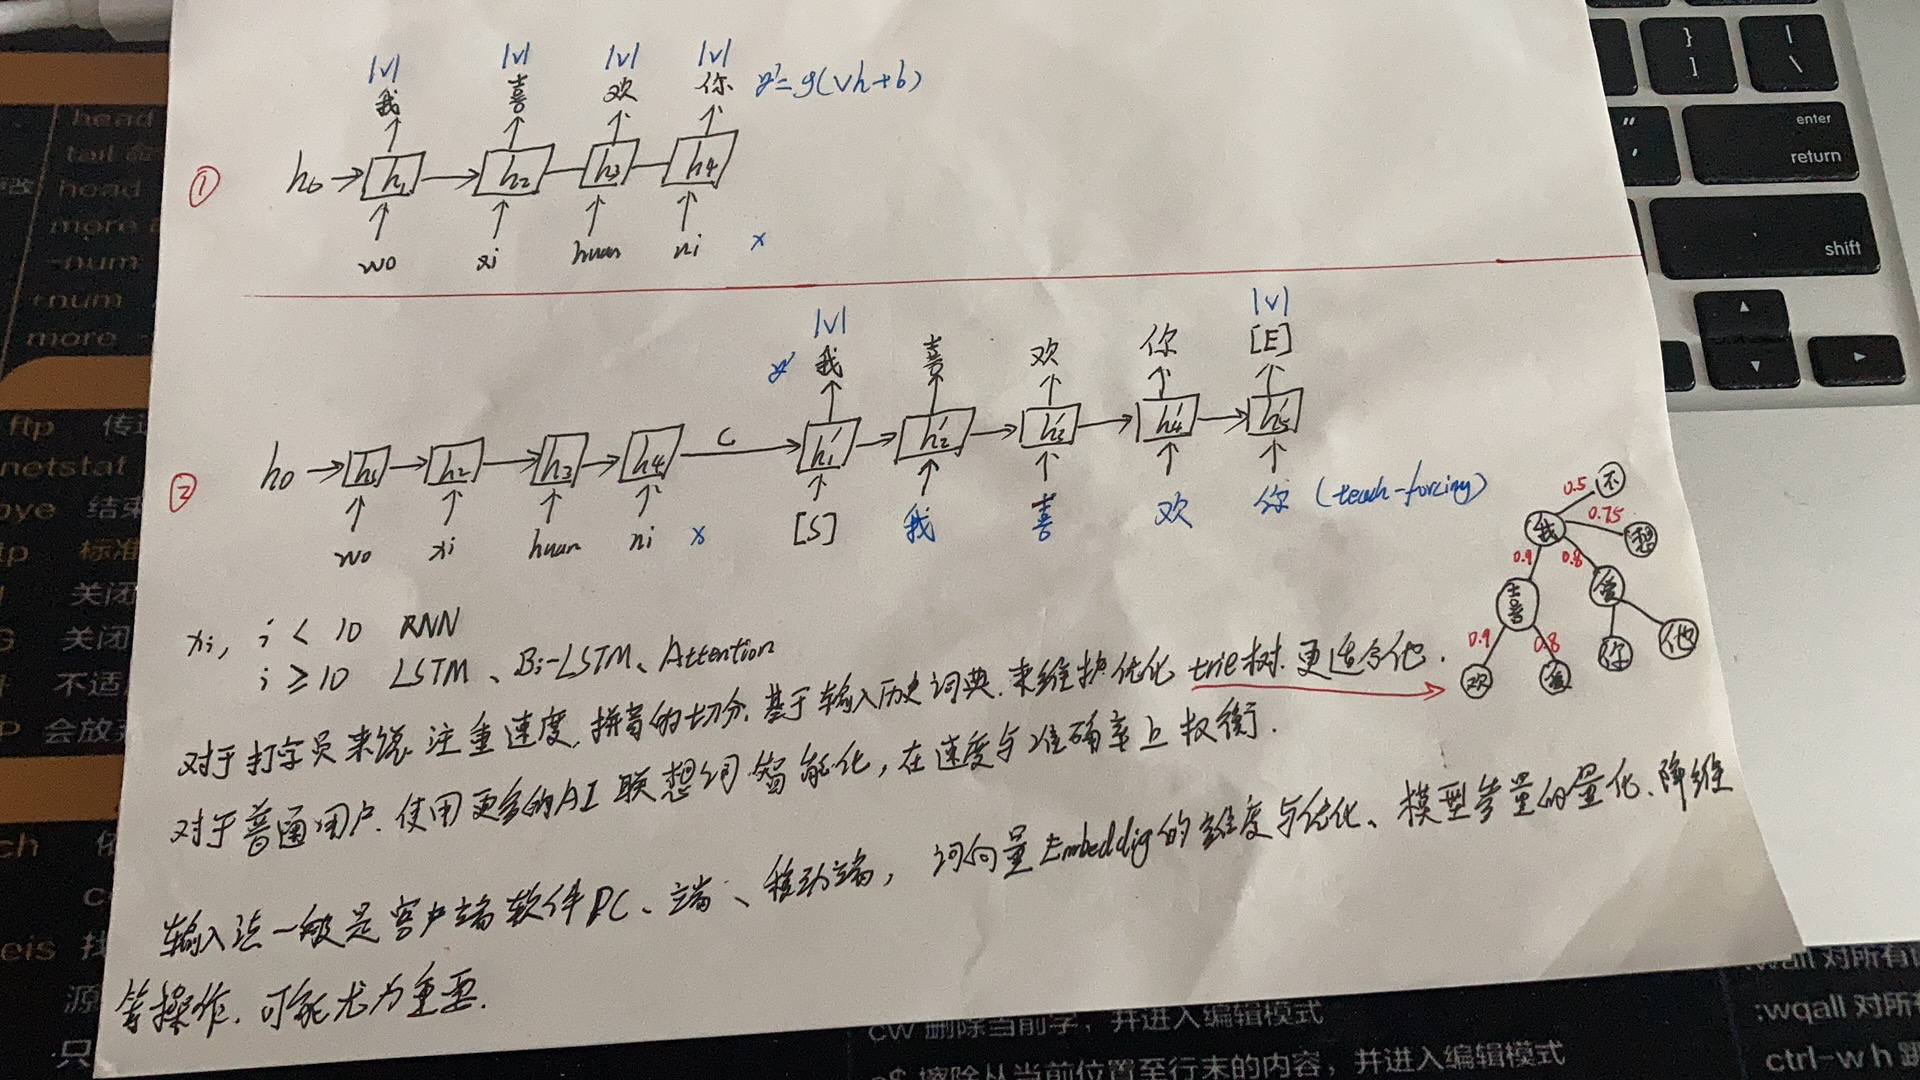 |V| |V| |V| |V|
我 喜 欢 你 y'=g(Vh+b)
① h₀ h₁ h₂ h₃ h₄
wo xi huan ni x
|V| |V|
y' 我 喜 欢 你 [E]
② h₀ h₁ h₂ h₃ h₄ C h₁' h₂' h₃' h₄' h₅'
wo xi huan ni x [S] 我 喜 欢 你 (teach-forcing)
0.5 不
我 0.75 想
0.9 0.8
喜 爱
0.9 0.8 你 他
欢
xi, i < 10 RNN
i ≥ 10 LSTM、Bi-LSTM、Attention
对于打字员来说.注重速度,拼音的切分.基于输入历史词典.来维护优化 trie树.更适合他.
对于普通用户.使用更多的AI联想词智能化,在速度与准确率上权衡.
输入法一般是客户端软件PC、端、移动端,词向量Embeddig的维度与优化、模型参量的量化、降维
等操作.可能尤为重要.
head
tail 命
head
more
-num
+num
more -
ftp 传
netstat
bye 结束
标准
关闭
关闭
不适
会放
ch
eis 找
源
只
}
]
|
\
"
'
enter
return
shift
cw 删除当前字，并进入编辑模式
擦除从当前位置至行末的内容，并进入编辑模式
:wall 对所有
:wqall 对所有
ctrl-w h